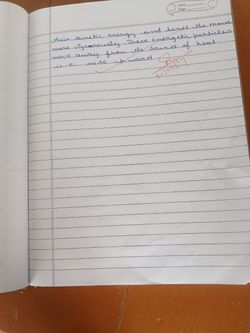 their kinetic energy and hence the move
more vigorously. These energetic particles
move away from the source of heat
i.e rise upward